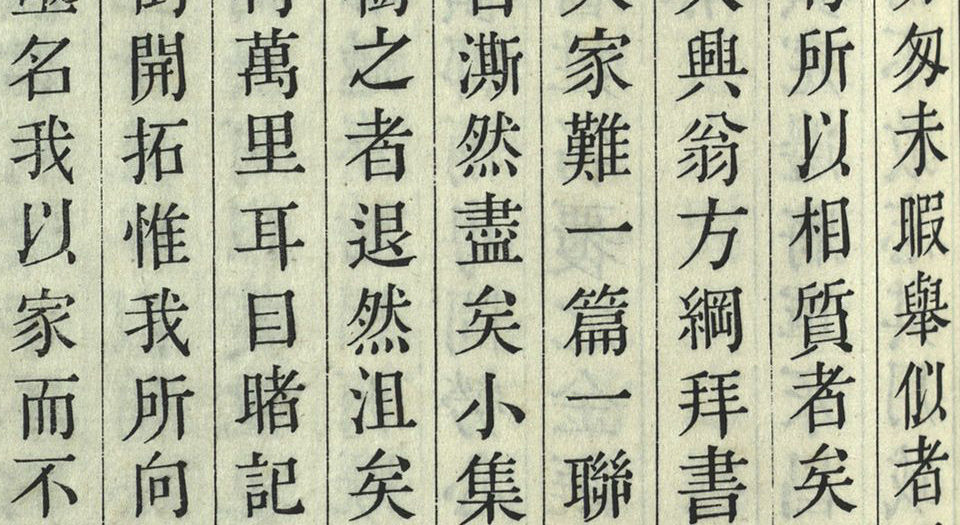 匆未暇舉似者
所以相質者矣
興翁方綱拜書
家難一篇一聯
澌然盡矣小集
之者退然沮矣
萬里耳目睹記
開拓惟我所向
名我以家而不